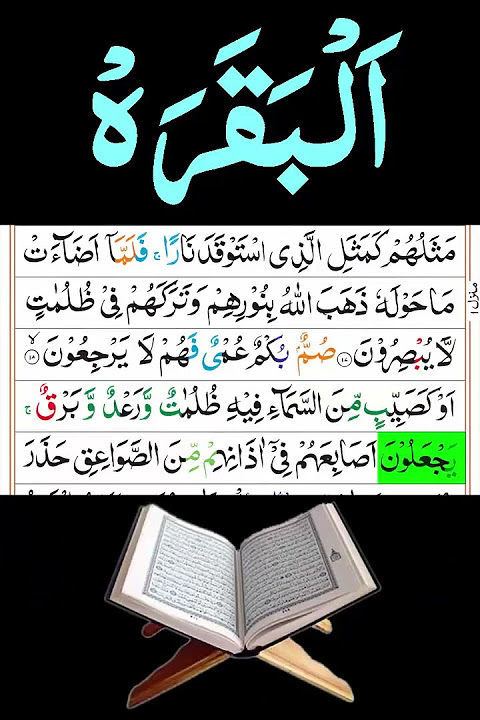 اَلْبَقَرَہْ
مَثَلُهُمْ كَمَثَلِ الَّذِی اسْتَوْقَدَ نَارًا ۚ فَلَمَّاۤ اَضَآءَتْ
مَا حَوْلَهٗ ذَهَبَ اللّٰهُ بِنُوْرِهِمْ وَتَرَكَهُمْ فِیْ ظُلُمٰتٍ
لَّا یُبْصِرُوْنَ ۝۱۷ صُمٌّۢ بُكْمٌ عُمْیٌ فَهُمْ لَا یَرْجِعُوْنَ ۝۱۸ۙ
اَوْ كَصَیِّبٍ مِّنَ السَّمَآءِ فِیْهِ ظُلُمٰتٌ وَّرَعْدٌ وَّبَرْقٌ ۚ
یَجْعَلُوْنَ اَصَابِعَهُمْ فِیْۤ اٰذَانِهِمْ مِّنَ الصَّوَاعِقِ حَذَرَ
منزل۱